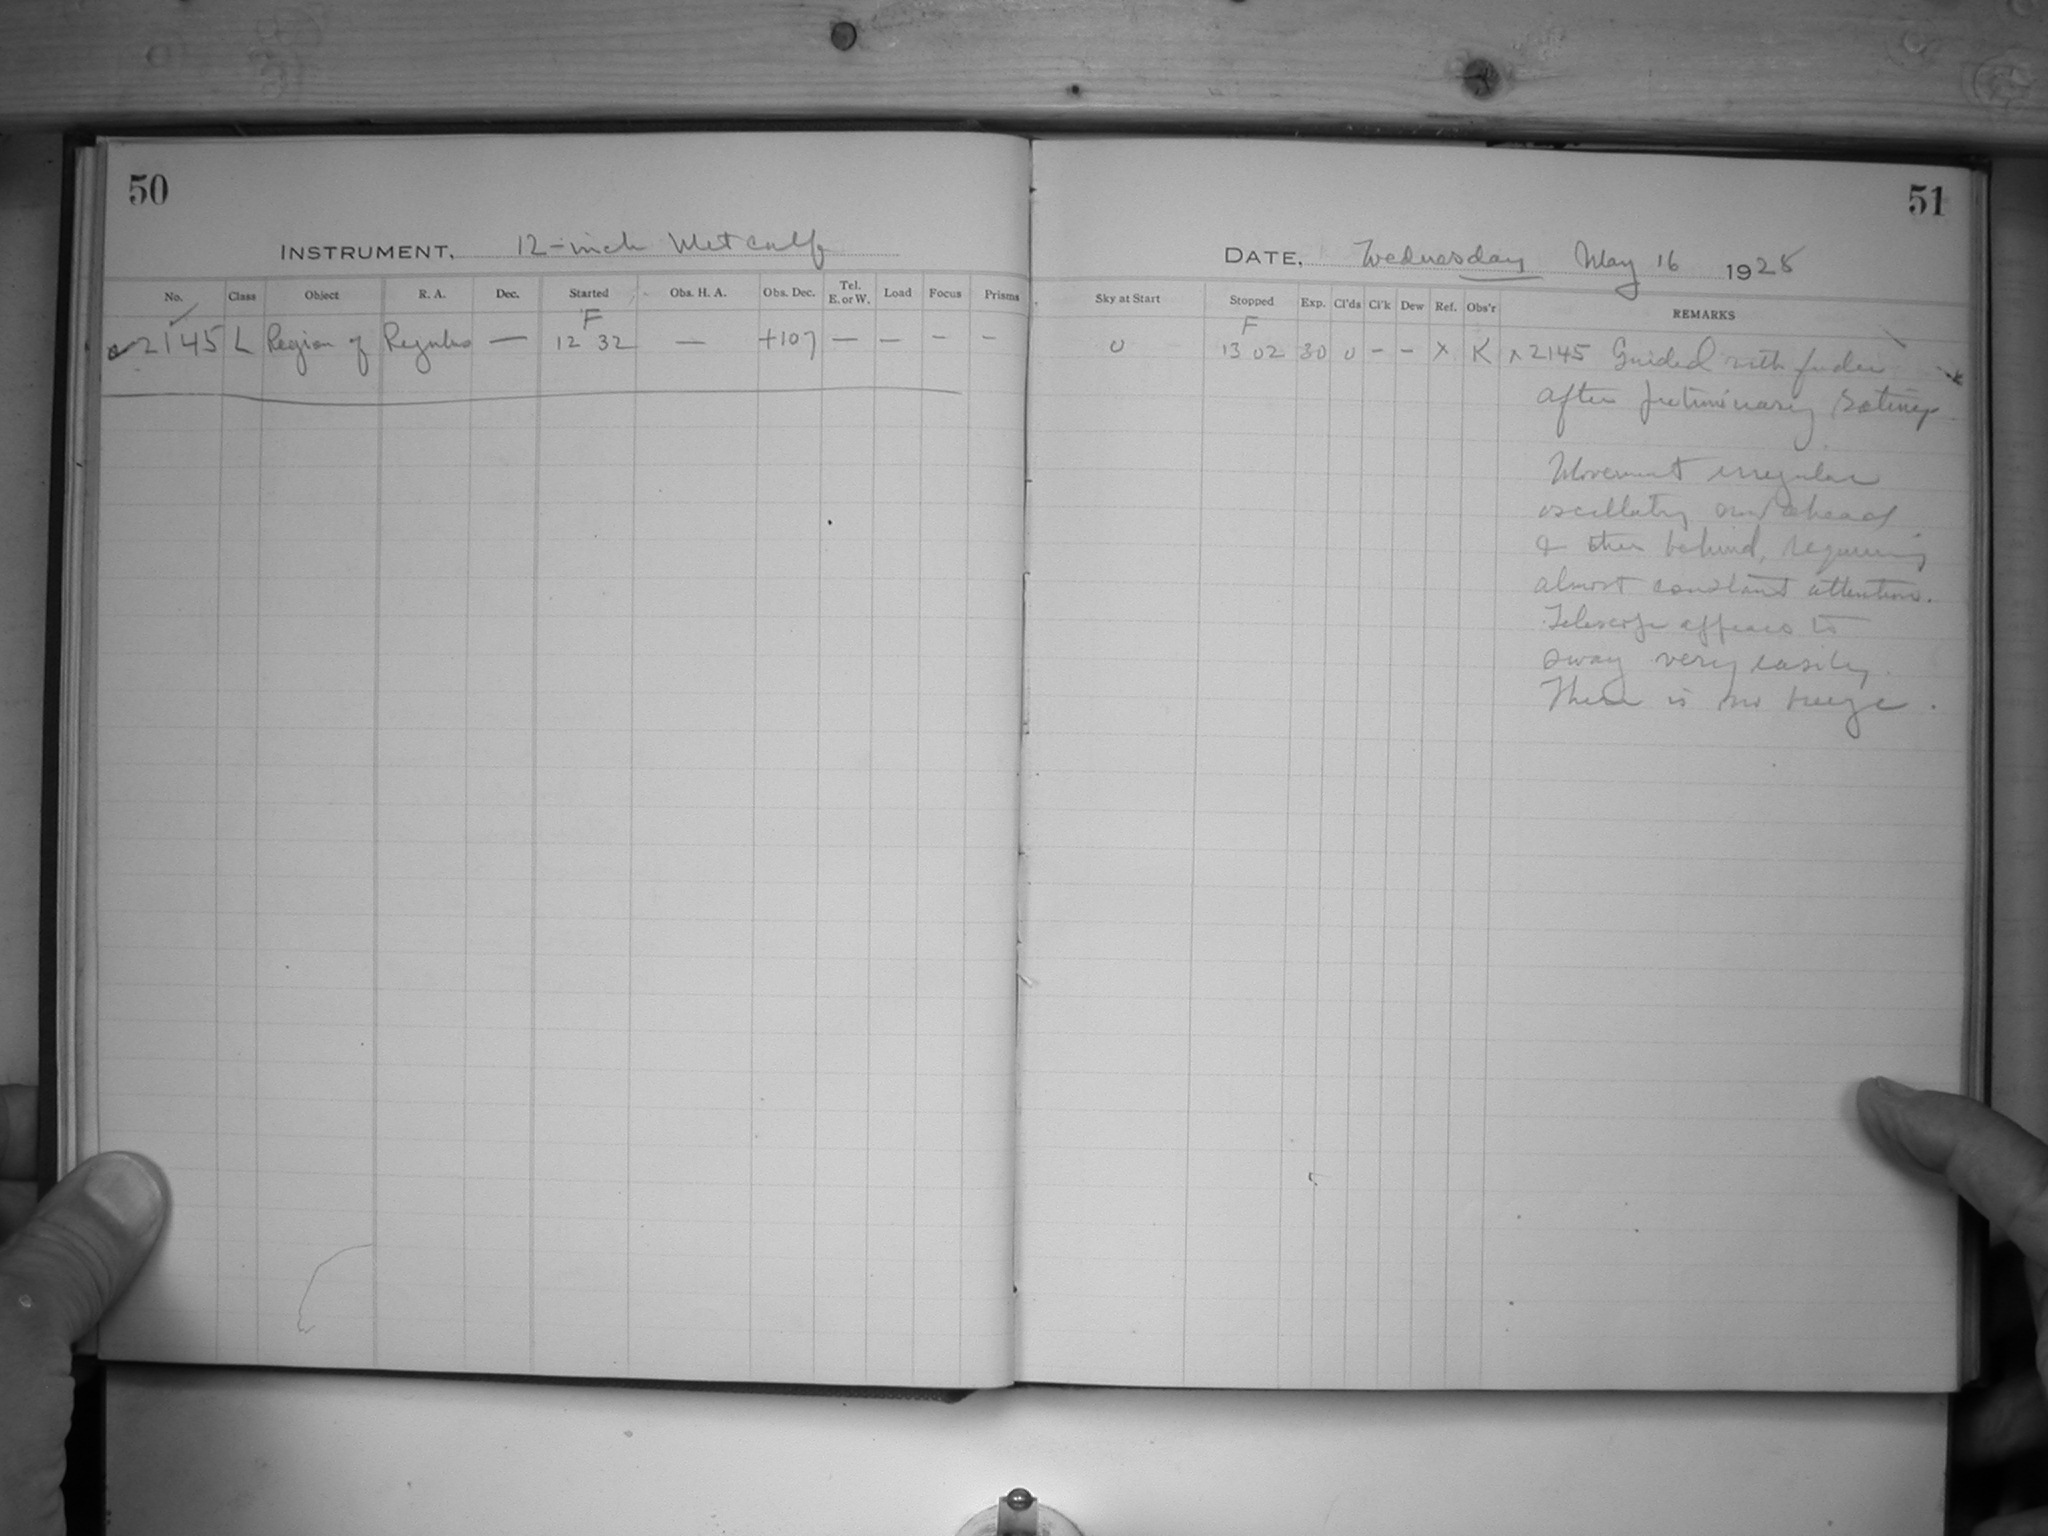 50
INSTRUMENT. 12-inch Metcalf
No. Class Object R. A. Dec. Started Obs. H. A. Obs. Dec. Tel. E. or W. Load Focus Prisms
F
2145 L Region of Regulus — 12 32 — +107 — — — —
51
DATE. Wednesday May 16 1928
Sky at Start Stopped Exp. Cl'ds Cl'k Dew Ref. Obs'r REMARKS
F
0 13 02 30 0 – – x K x 2145 Guided with finder
after preliminary
Movement irregular
oscillating ahead
& then behind, requiring
almost constant attention.
Telescope appears to
sway very easily.
There is no breeze.